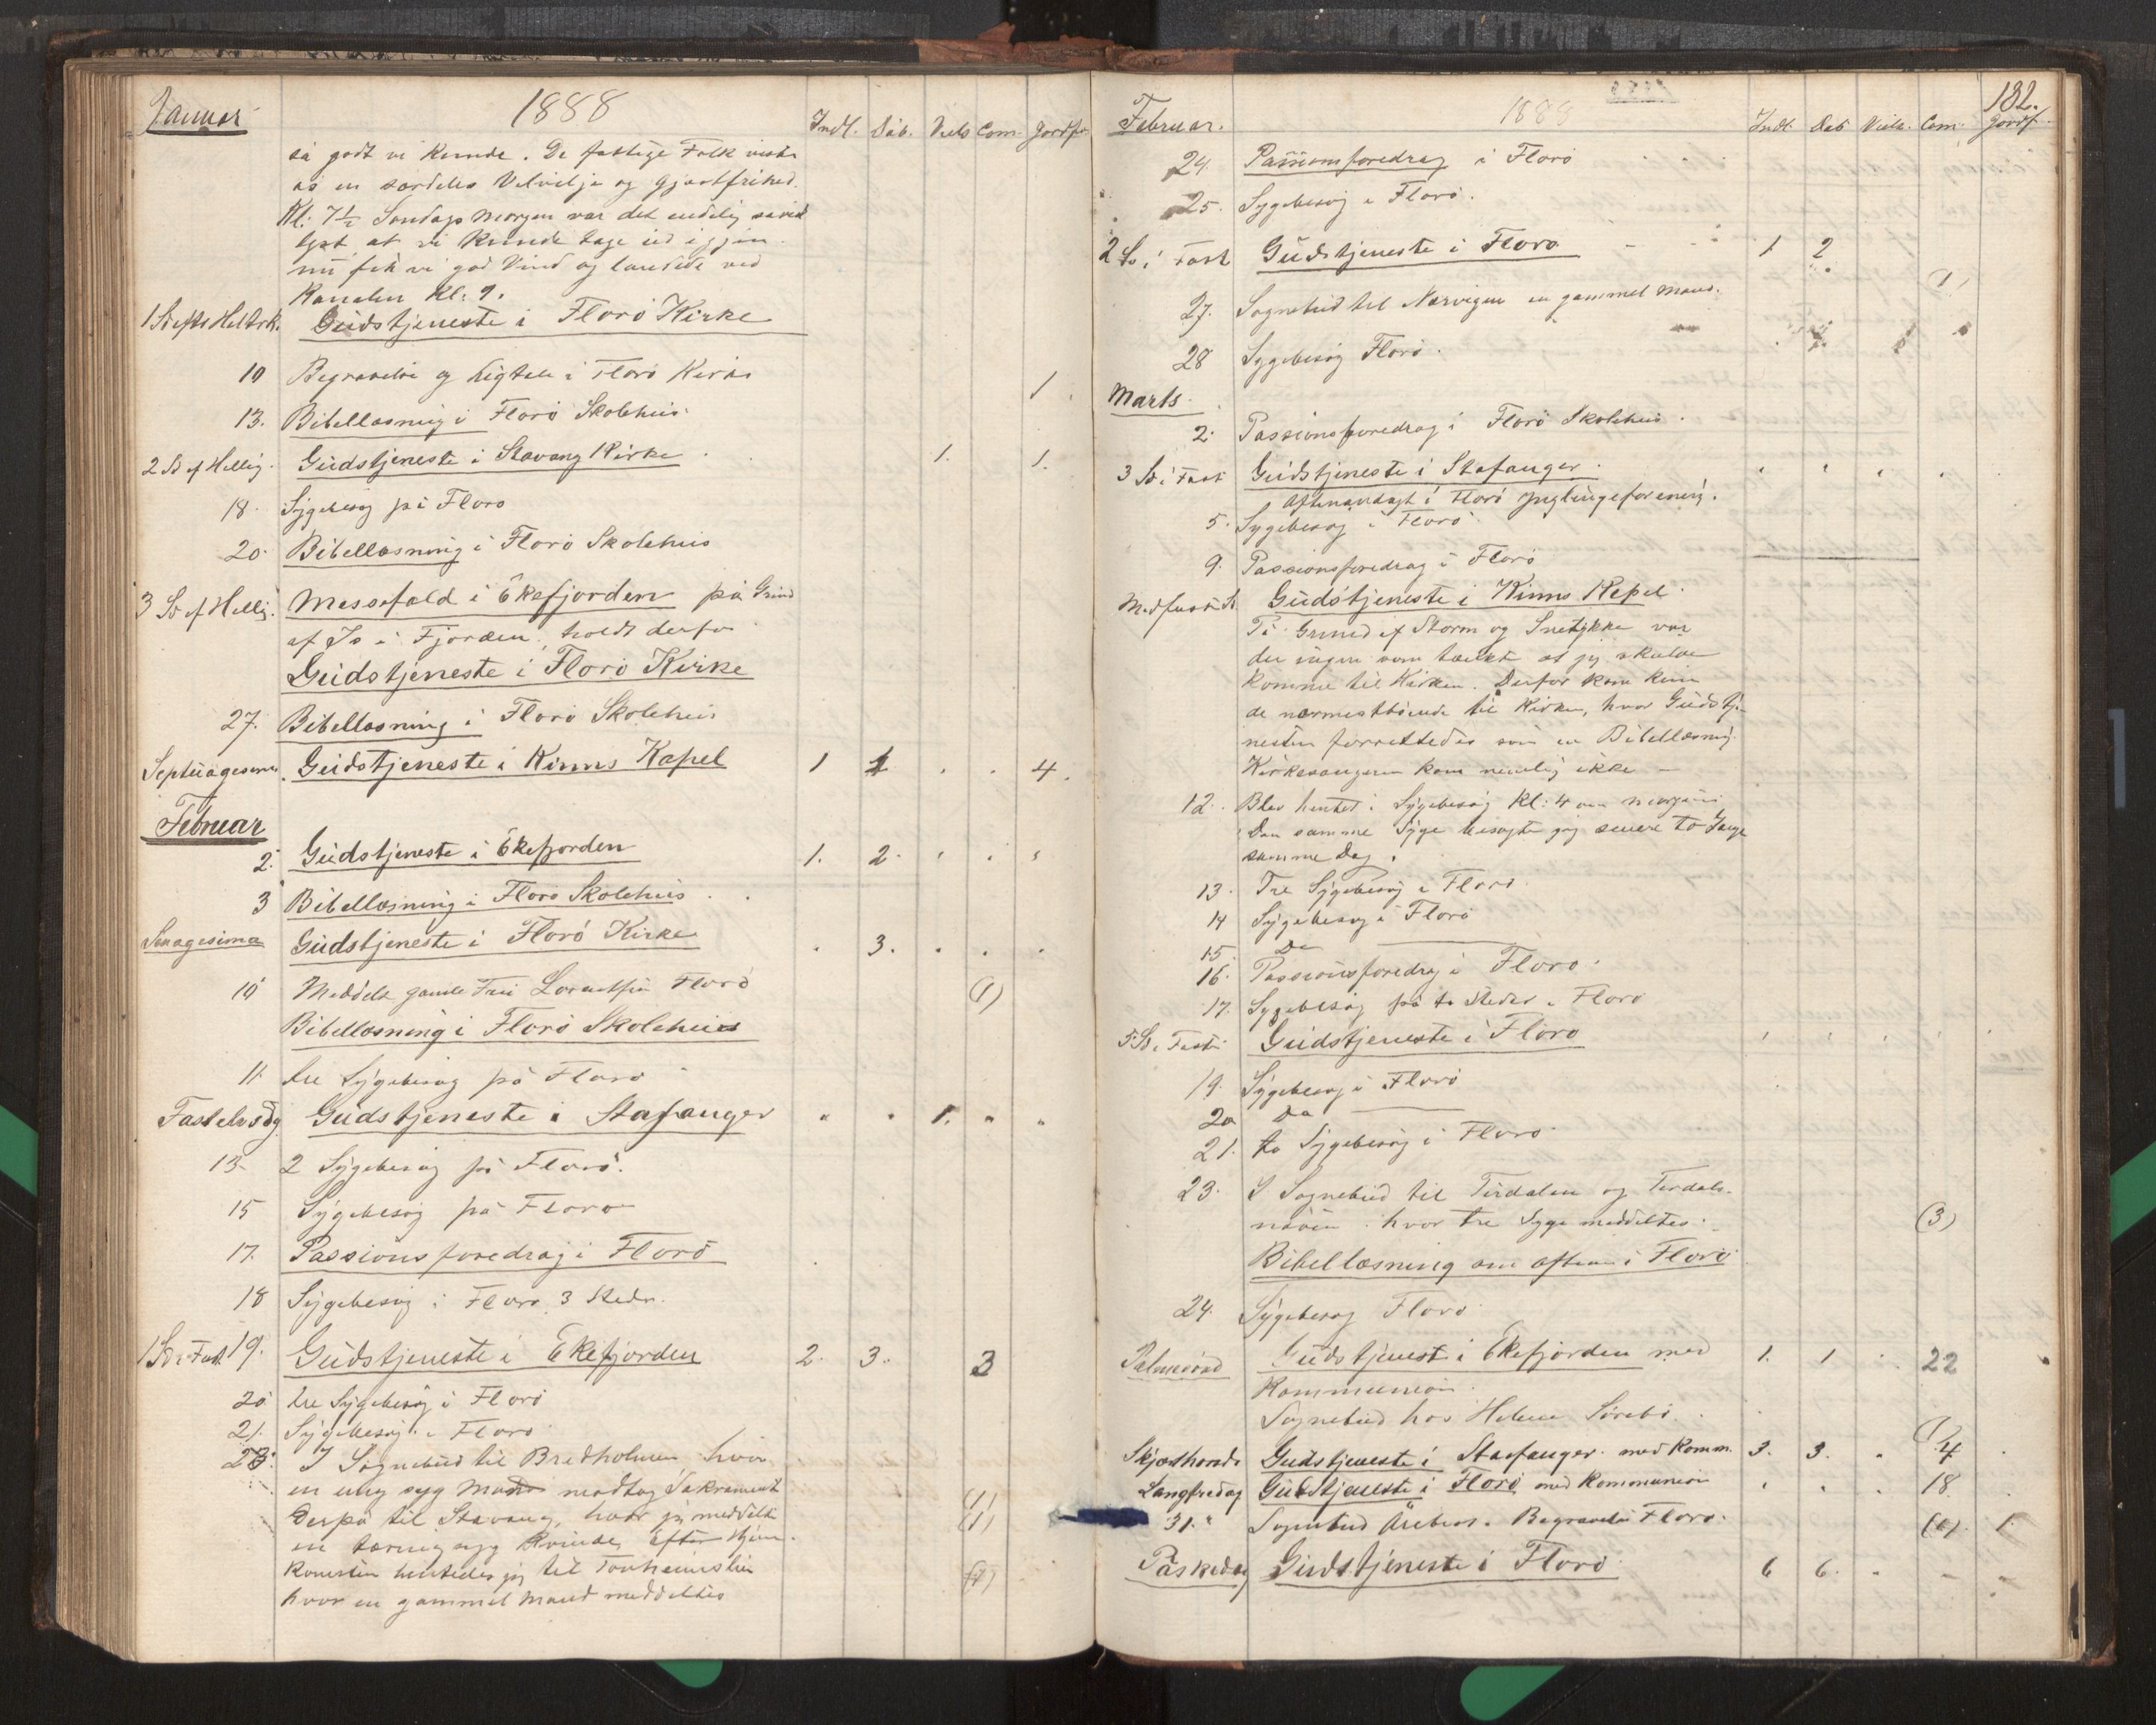 Januar 1888 Indl. Dåb. Viels Com. Jordf.
så godt vi kunde. De fattige Folk viste
os en særdeles Velvilje og Gjæstfrihed.
Kl: 7½ Søndags Morgen var det endelig såvidt
lyst at vi kunde tage ud igjen
nu fik vi god Vind og landede ved
Kanalen Kl: 9.
1 S. efter Heltrk. Gudstjeneste i Florö Kirke
10 Begravelse og Ligtale i Florö Kirke 1.
13. Bibellæsning i Florö Skolehus.
2 S. ef Hellig. Gudstjeneste i Stavang Kirke 1. 1.
18. Sygebesög på Florö
20. Bibellæsning i Florö Skolehus
3 S. ef Hellig. Messefald i Ekefjorden på Grund
af Is i Fjorden, holdt derfor
Gudstjeneste i Florö Kirke
27. Bibellæsning i Florö Skolehus
Septuagesima. Gudstjeneste i Kinns Kapel 1 1 . . 4.
Februar
2. Gudstjeneste i Ekefjorden 1. 2. . . .
3 Bibellæsning i Florö Skolehus
Sexagesima Gudstjeneste i Florö Kirke . 3. . . .
10 Meddelt gamle Fru Florö (1)
Bibellæsning i Florö Skolehus
11. tre Sygebesög på Florö
Fastelvsdg Gudstjeneste i Stafanger . . 1. . .
13. 2 Sygebesög på Florö.
15 Sygebesög på Florö
17. Passionsforedrag i Florö
18 Sygebesög i Florö 3 Steder.
1 S. i Fast. 19. Gudstjeneste i Ekefjorden 2. 3. 3
20. tre Sygebesög i Florö
21. Sygebesög i Florö
23. I Sognebud til Bredholmen hvor
en ung syg Mand modtog Sakrament (1)
Derpå til Stavang, hvor jeg meddelte (1)
en tæringssyg Kvinde, Efter Hjem-
komsten hentedes jeg til (1)
hvor en gammel Mand meddeltes
182.
Februar. 1888 Indl. Dåb Viels. Com. Jordf.
24. Passionsforedrag i Florö
25. Sygebesög i Florö.
2 S. i Fast Gudstjeneste i Florö 1 2
27. Sognebud til Norvigen en gammel Mand. (1)
28 Sygebesög Florö.
Marts.
2. Passionsforedrag i Florö Skolehus.
3 S. i Fast Gudstjeneste i Stafanger. . . . .
Aftenandagt i Florö Ynglingeforening.
5. Sygebesög i Florö
9. Passionsforedrag i Florö
Midfaste S. Gudstjeneste i Kinns Kapel.
På Grund af Storm og Snetykke var
der ingen som tænkte at jeg skulde
komme til Kirken. Derfor kom kun
de nærmestboende til Kirken, hvor Gudstj-
nesten forrettedes som en Bibellæsning.
Kirkesangeren kom nemlig ikke –
12. Blev hentet i Sygebesög Kl: 4 om morgenen
Den samme Syge besögte jeg senere to Gange
samme Dag.
13. Tre Sygebesög i Florö
14 Sygebesög i Florö
15. Do
16. Passionsforedrag i Florö.
17. Sygebesög på to Steder i Florö
5 S. i Fast. Gudstjeneste i Florö . . . .
19. Sygebesög i Florö
20 Do
21. to Sygebesög i Florö
23. I Sognebud til Tirdalen og Tirdals-
hvor tre Syge meddeltes. (3)
Bibellæsning om aftenen i Florö
24. Sygebesög Florö
Palmesönd Gudstjenest i Ekefjorden med 1. 1 . 22
Kommunion.
Sognebud hos Helene Sörebö. (1)
Skjærthorsdg Gudstjeneste i Stafanger. med Komm. 3. 3. . 4 .
Langfredag Gudstjeneste i Florö med Kommunion . . . 18.
31. Sognebud Begravelse Florö. (1). 1.
Påskedag Gudstjeneste i Florö 6 6. . - -